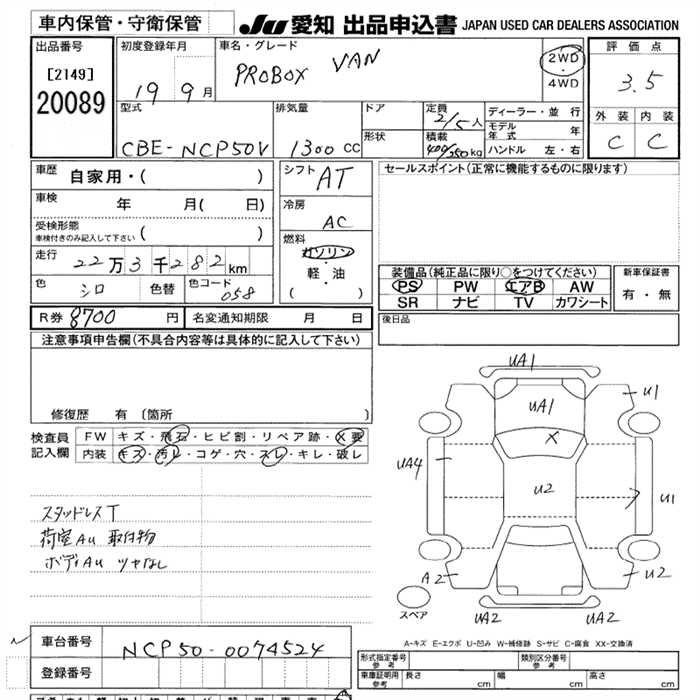 車内保管・守衛保管
JU 愛知 出品申込書 JAPAN USED CAR DEALERS ASSOCIATION
出品番号
[2149]
20089
初度登録年月
19 9月
車名・グレード
PROBOX VAN
2WD
・
4WD
評価点
3.5
外装 内装
C C
型式
CBE-NCP50V
排気量
1300 CC
ドア
形状
定員
2/5人
積載
400/250kg
ディーラー・並行
モデル年式 年
ハンドル 左・右
車歴
自家用・( )
車検
年 月( 日)
受検形態
車検付きのみ記入して下さい ( )
走行
22万3千282km
色
シロ
色替
色コード
058
シフト
AT
冷房
AC
燃料
ガソリン
・
軽・油
( )
セールスポイント(正常に機能するものに限ります)
装備品(純正品に限り○をつけてください)
PS PW エアB AW
SR ナビ TV カワシート
新車保証書
有・無
R券 8700 円
名変通知期限 月 日
後日品
注意事項申告欄(不具合内容等は具体的に記入して下さい)
修復歴 有 〔箇所 〕
検査員
記入欄
FW キズ・飛石・ヒビ割・リペア跡・X要
内装 キズ・汚レ・コゲ・穴・スレ・キレ・破レ
スタッドレスT
荷室Au 取付物
ボディAu ツヤなし
UA1
UA1
U1
X
UA4
U2
U1
A2
U2
スペア
UA2
UA2
A-キズ E-エクボ U-凹み W-補修跡 S-サビ C-腐食 XX-交換済
車台番号
NCP50-0074524
登録番号
形式指定番号
参考
類別区分番号
参考
車庫証明用
参考
長さ cm
幅 cm
高さ cm